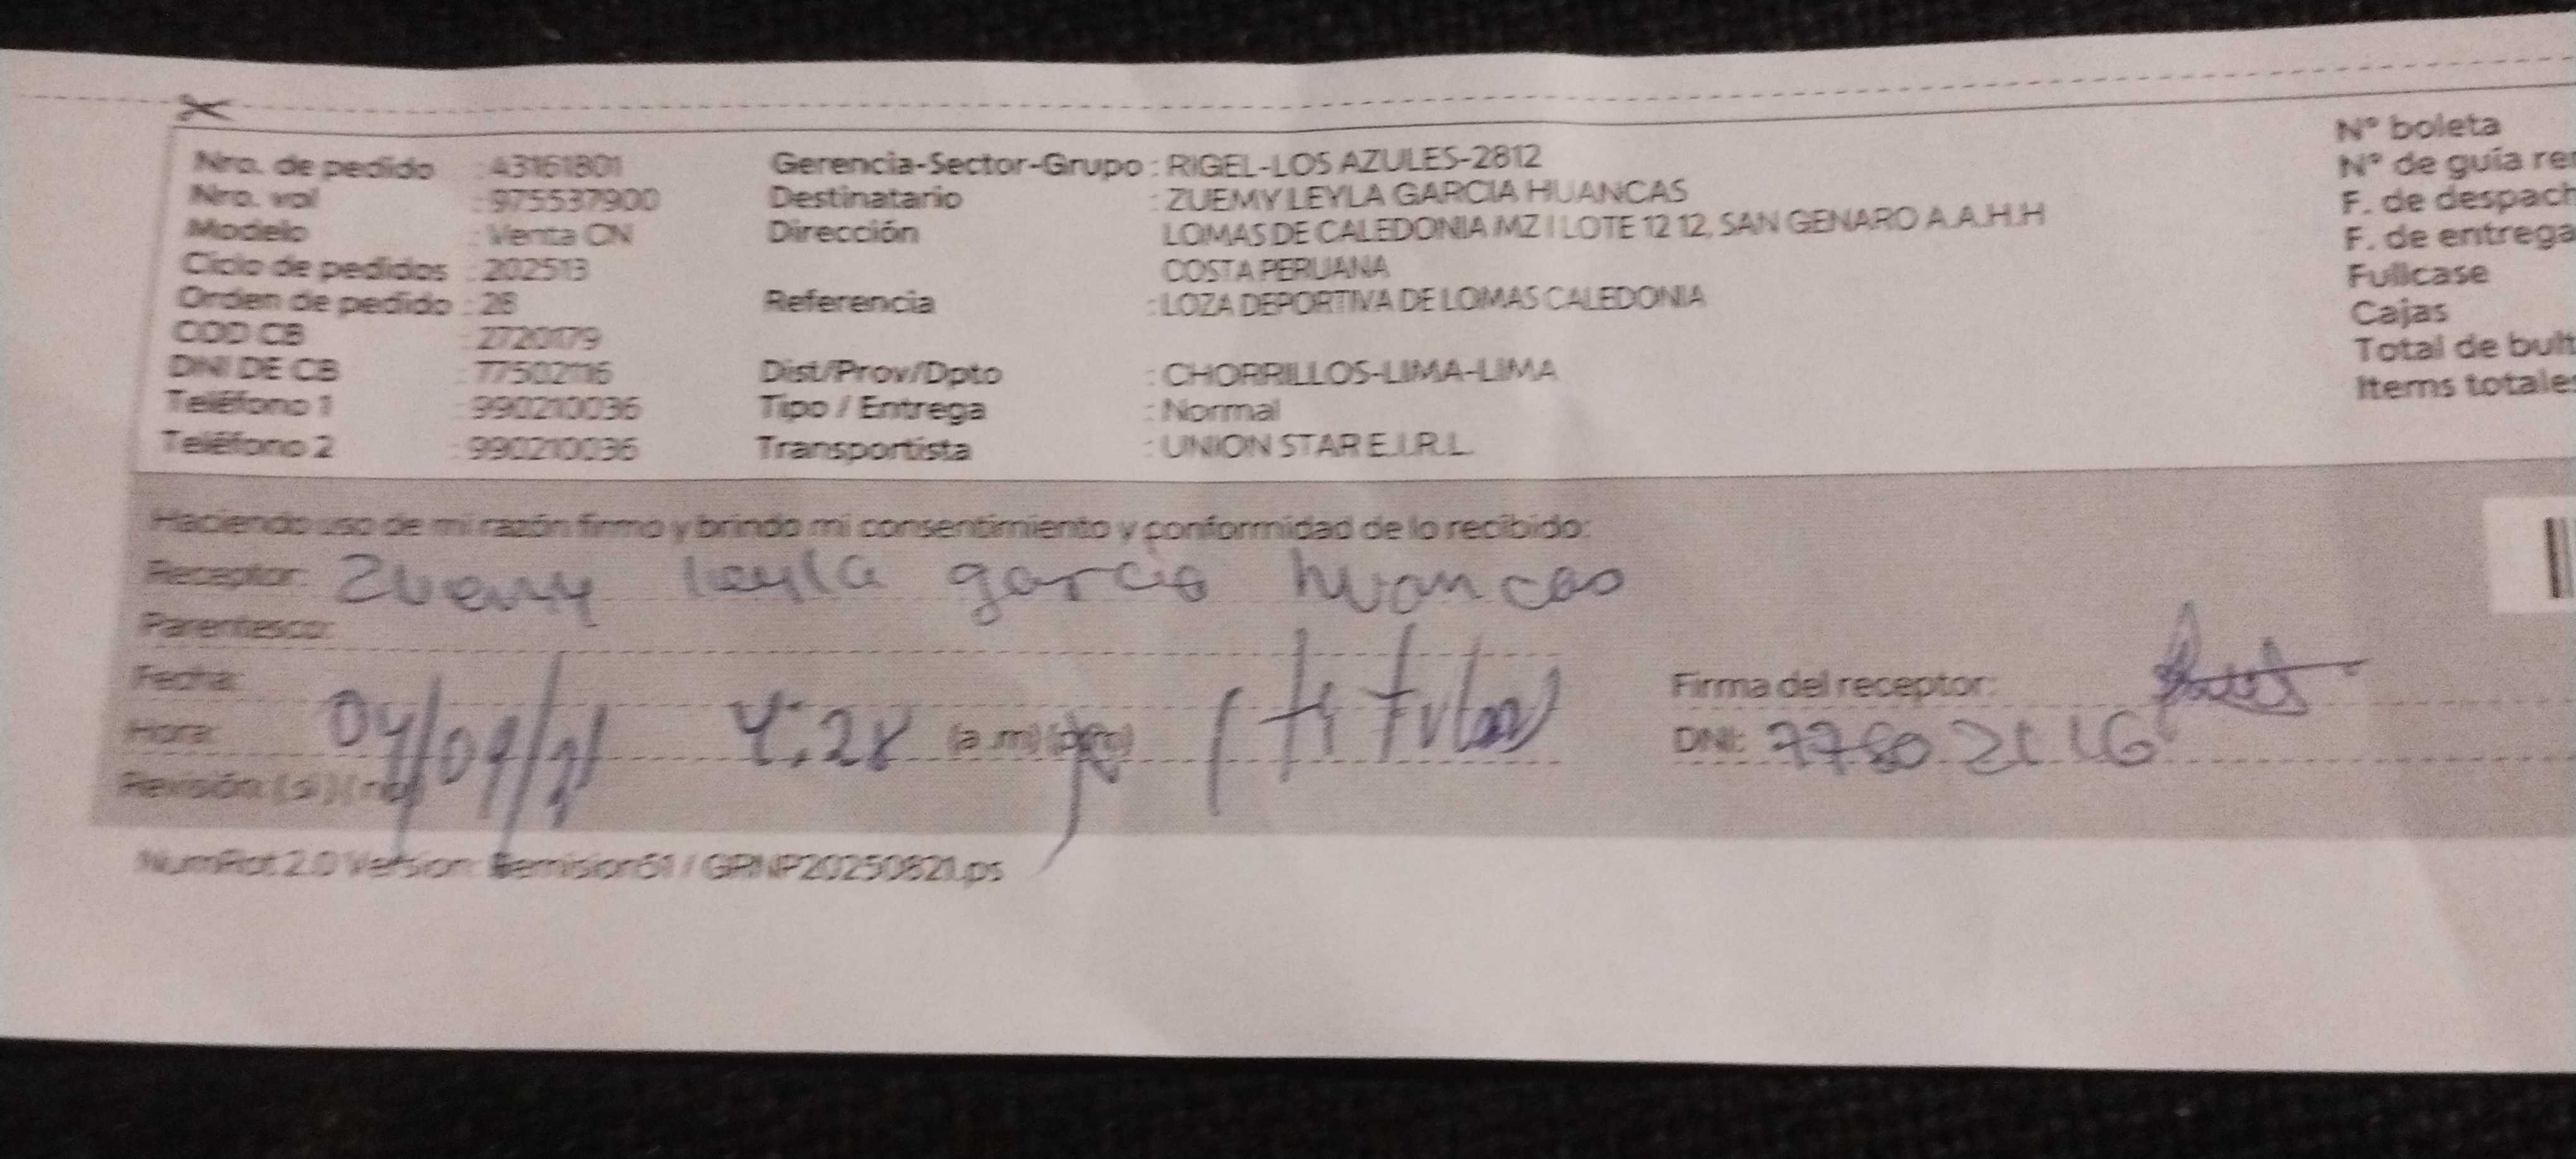 Nro. de pedido : A3161801
Nro. vol : 975537900
Modelo : Venta ON
Ciclo de pedidos : 202513
Orden de pedido : 28
COD CB : 2720179
DNI DE CB : 77502116
Teléfono 1 : 990210036
Teléfono 2 : 990210036
Gerencia-Sector-Grupo : RIGEL-LOS AZULES-2812
Destinatario : ZUEMY LEYLA GARCIA HUANCAS
Dirección LOMAS DE CALEDONIA MZ I LOTE 12 12, SAN GENARO A.A.H.H
COSTA PERUANA
Referencia : LOZA DEPORTIVA DE LOMAS CALEDONIA
Dist/Prov/Dpto : CHORRILLOS-LIMA-LIMA
Tipo / Entrega : Normal
Transportista : UNION STAR E.I.R.L.
Nº boleta
Nº de guía re
F. de despach
F. de entrega
Fullcase
Cajas
Total de bult
Items totales
Haciendo uso de mi razón firmo y brindo mi consentimiento y conformidad de lo recibido:
Receptor: Zuemy leyla garcia huancas
Parentesco:
Fecha:
Hora: 04/09/ 4:28 (a.m) (p.m) (titular)
Revisión: (si) (no)
Firma del receptor:
DNI:
NumRot 2.0 Version: Remision61 / GRNP20250821.ps